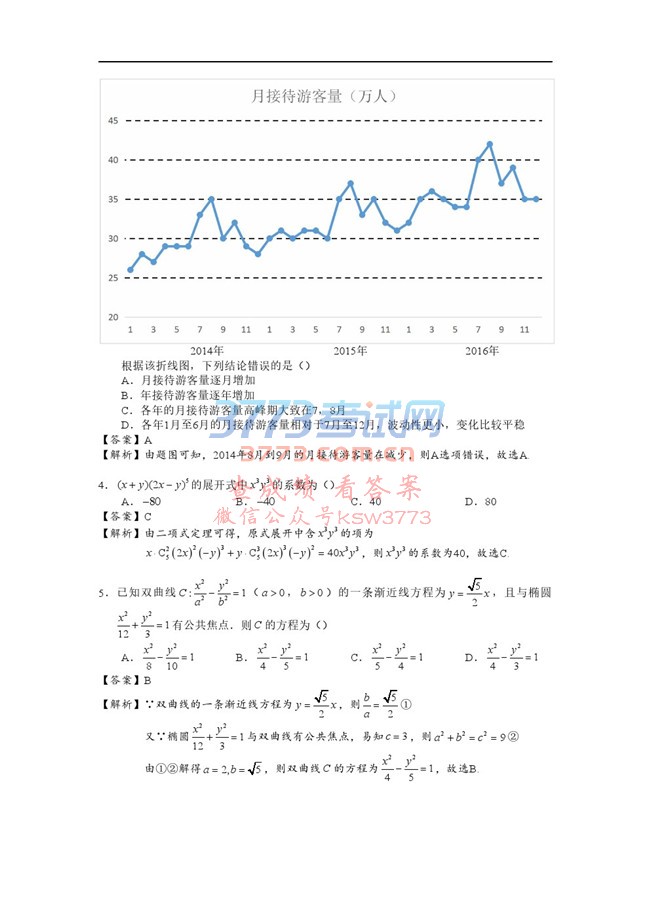 月接待游客量（万人）
45
40
35
30
25
20
1 3 5 7 9 11 1 3 5 7 9 11 1 3 5 7 9 11
2014年 2015年 2016年
根据该折线图，下列结论错误的是（）
A．月接待游客量逐月增加
B．年接待游客量逐年增加
C．各年的月接待游客量高峰期大致在7，8月
D．各年1月至6月的月接待游客量相对于7月至12月，波动性更小，变化比较平稳
【答案】A
【解析】由题图可知，2014年8月到9月的月接待游客量在减少，则A选项错误，故选A.
4．(x+y)(2x−y)⁵的展开式中x³y³的系数为（）
A．−80 B．−40 C．40 D．80
【答案】C
【解析】由二项式定理可得，原式展开中含x³y³的项为
x·C₅²(2x)²(−y)³+y·C₅³(2x)³(−y)²=40x³y³，则x³y³的系数为40，故选C.
5．已知双曲线C:x²/a²−y²/b²=1（a>0，b>0）的一条渐近线方程为y=√5/2 x，且与椭圆
x²/12+y²/3=1有公共焦点．则C的方程为（）
A．x²/8−y²/10=1 B．x²/4−y²/5=1 C．x²/5−y²/4=1 D．x²/4−y²/3=1
【答案】B
【解析】∵双曲线的一条渐近线方程为y=√5/2 x，则b/a=√5/2①
又∵椭圆x²/12+y²/3=1与双曲线有公共焦点，易知c=3，则a²+b²=c²=9②
由①②解得a=2,b=√5，则双曲线C的方程为x²/4−y²/5=1，故选B.
3773考试网
3773.com.cn
查成绩 看答案
微信公众号ksw3773